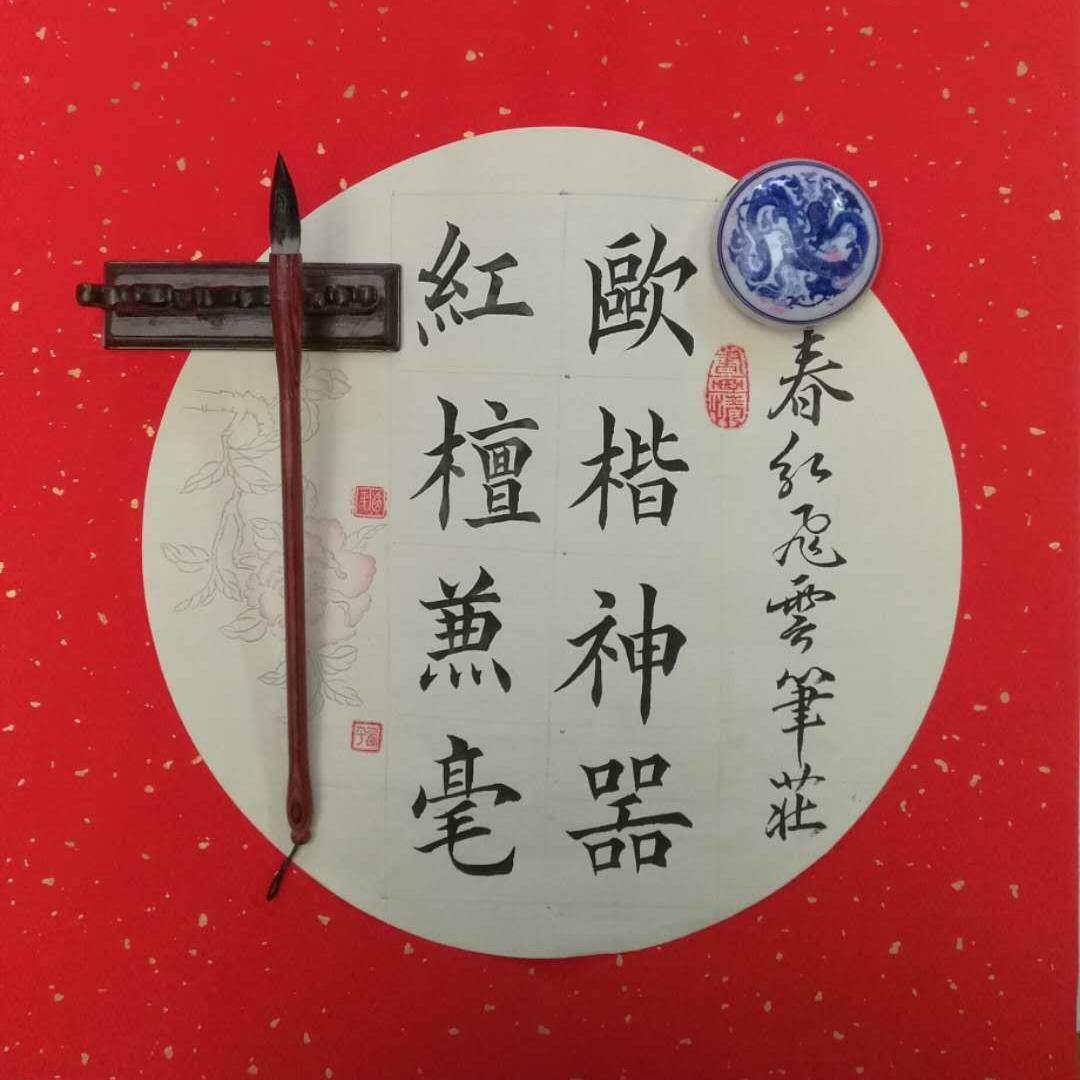 春红飛雲筆莊
歐楷神器
紅檀兼毫